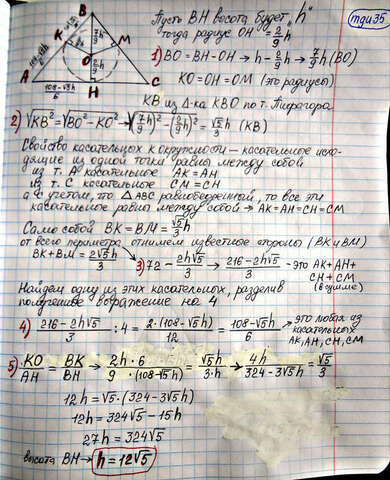 Пусть BH высота будет "h"
тогда радиус OH = 2/9 h
тди35
B
K
M
O
A
H
C
7/9 h
2/9 h
108-√5h/6
1) BO = BH - OH → h - 2/9 h → 7/9 h (BO)
KO = OH = OM (это радиусы)
KB из Δ-ка KBO по т. Пифагора
2) √KB² = √BO² - KO² → √(7/9 h)² - (2/9 h)² = √5/3 h (KB)
Свойство касательных к окружности – касательные исхо-
дящие из одной точки равны между собой
из т. A касательное AK = AH
из т. C касательное CM = CH
а с учетом, что ΔABC равнобедренный, то все эти
касательные равны между собой → AK = AH = CH = CM
Само собой BK = BM = √5/3 h
от всего периметра отнимем известные стороны (BK и BM)
BK + BM = 2√5h/3
3) 72 - 2h√5/3 → 216-2h√5/3 - это AK + AH +
CH + CM
(в сумме)
Найдем одну из этих касательных, разделив
полученное выражение на 4
4) 216-2h√5/3 : 4 = 2·(108-√5h)/12 = 108-√5h/6 → это любая из
касательных
AK, AH, CH, CM
5) KO/AH = BK/BH → 2h·6/9·(108-√5h) = √5h/3·h → 4h/324-3√5h = √5/3
12h = √5·(324-3√5h)
12h = 324√5 - 15h
27h = 324√5
высота BH → h = 12√5